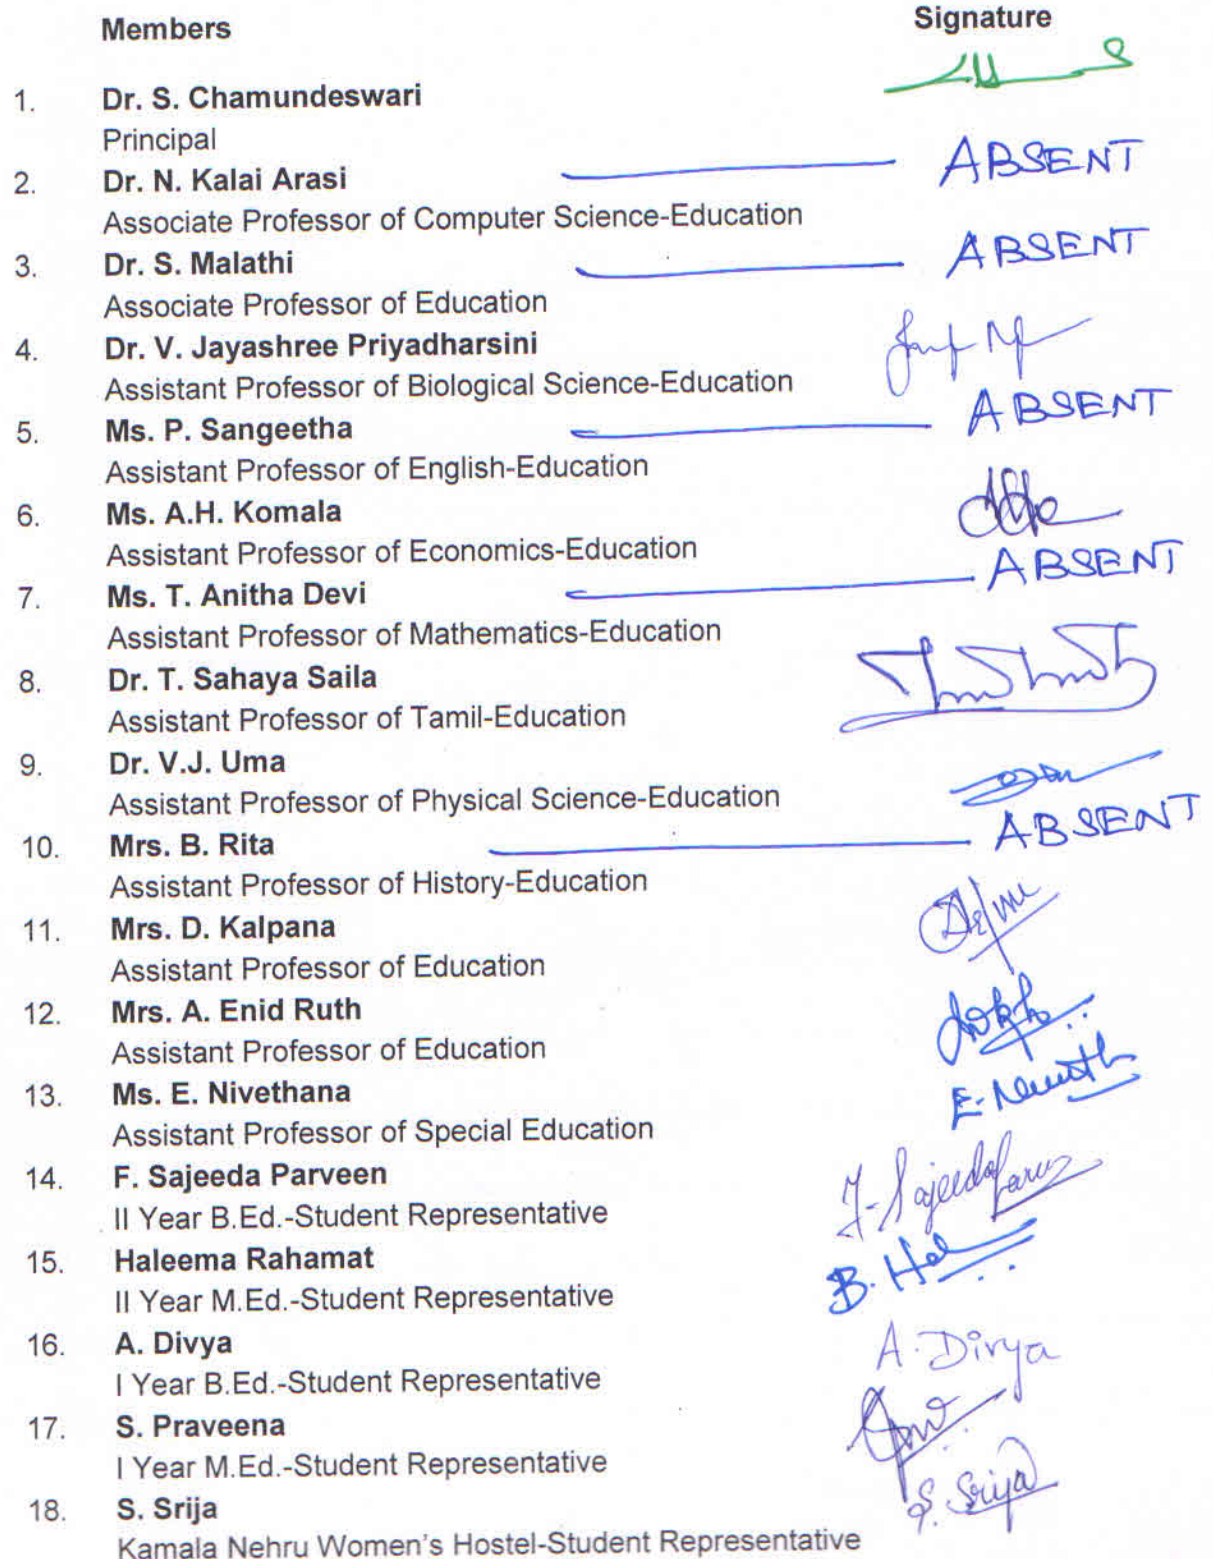 Members Signature
1. Dr. S. Chamundeswari
Principal
2. Dr. N. Kalai Arasi ABSENT
Associate Professor of Computer Science-Education
3. Dr. S. Malathi ABSENT
Associate Professor of Education
4. Dr. V. Jayashree Priyadharsini
Assistant Professor of Biological Science-Education
5. Ms. P. Sangeetha ABSENT
Assistant Professor of English-Education
6. Ms. A.H. Komala
Assistant Professor of Economics-Education
7. Ms. T. Anitha Devi ABSENT
Assistant Professor of Mathematics-Education
8. Dr. T. Sahaya Saila
Assistant Professor of Tamil-Education
9. Dr. V.J. Uma
Assistant Professor of Physical Science-Education
10. Mrs. B. Rita ABSENT
Assistant Professor of History-Education
11. Mrs. D. Kalpana
Assistant Professor of Education
12. Mrs. A. Enid Ruth
Assistant Professor of Education
13. Ms. E. Nivethana E.
Assistant Professor of Special Education
14. F. Sajeeda Parveen
II Year B.Ed.-Student Representative
15. Haleema Rahamat B.
II Year M.Ed.-Student Representative
16. A. Divya A. Divya
I Year B.Ed.-Student Representative
17. S. Praveena
I Year M.Ed.-Student Representative
18. S. Srija S. Srija
Kamala Nehru Women's Hostel-Student Representative